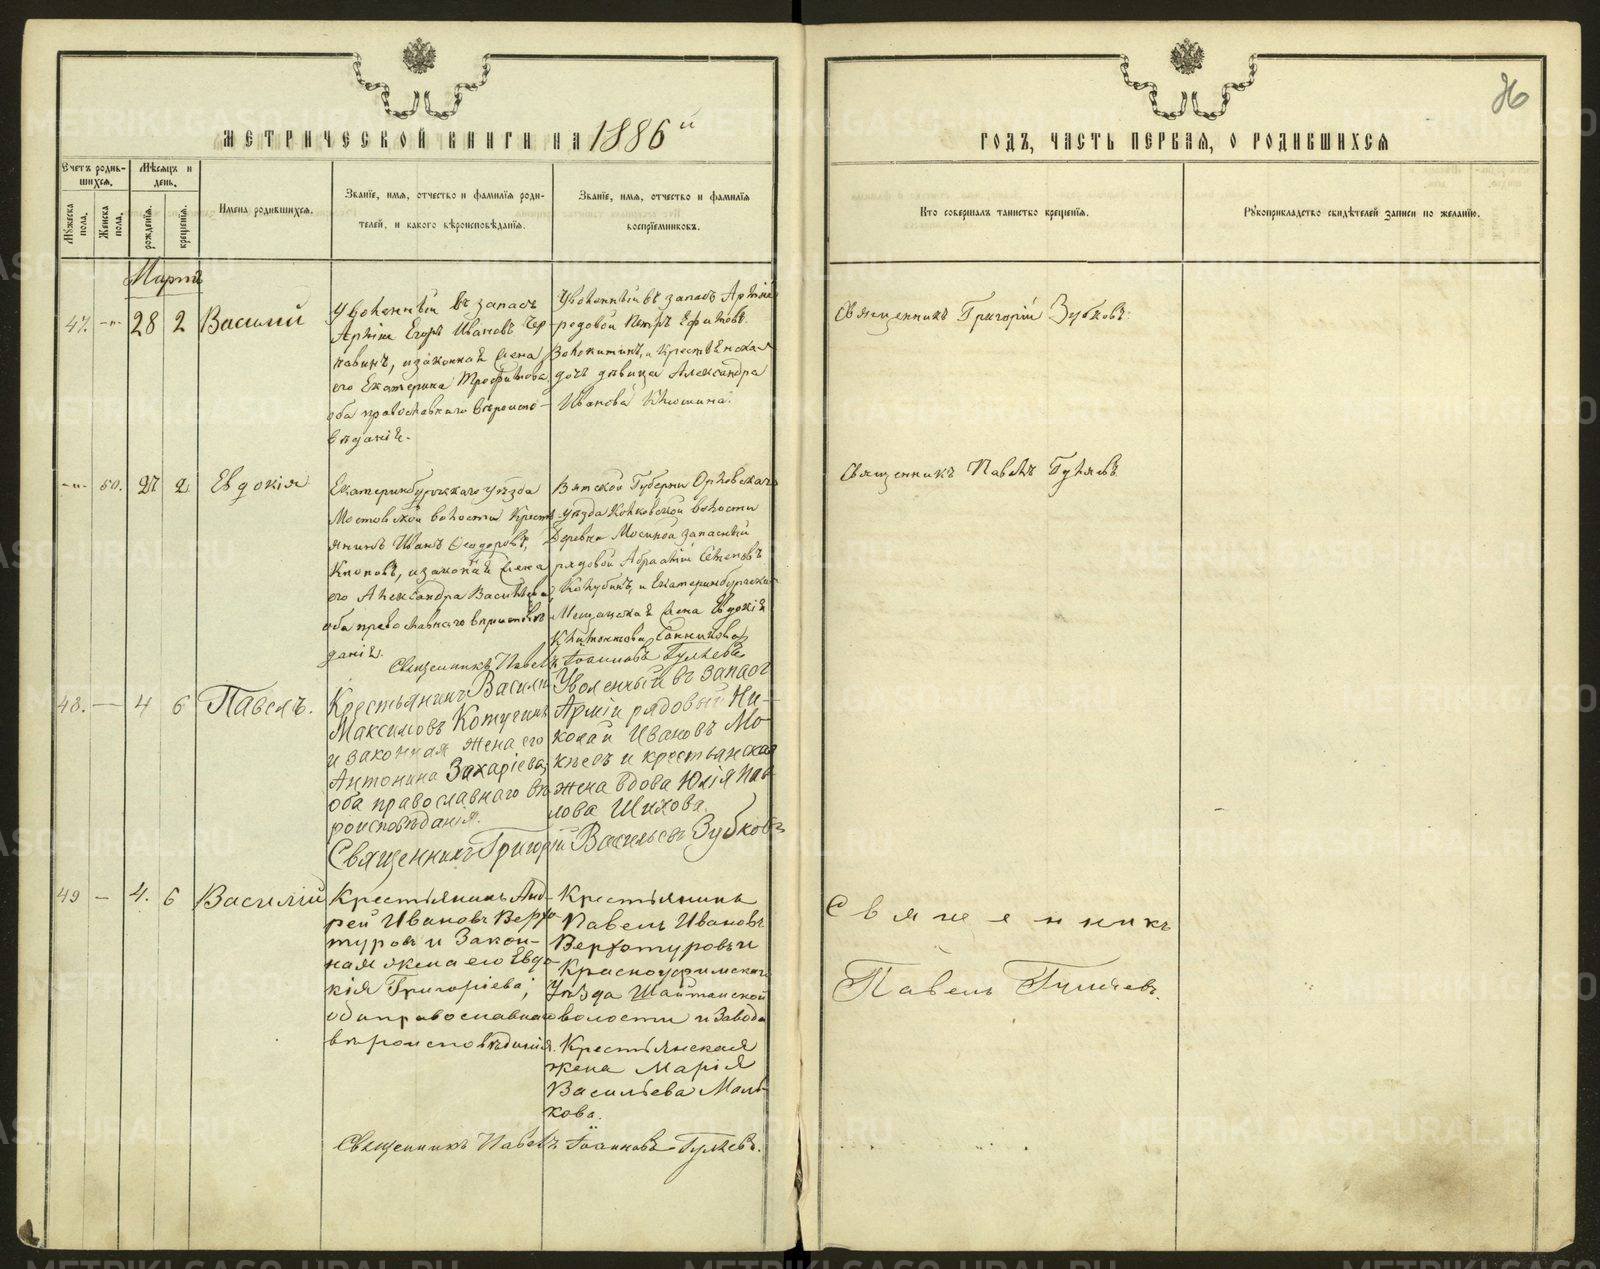 МЕТРИЧЕСКОЙ КНИГИ НА 1886й
ГОДЪ, ЧАСТЬ ПЕРВАЯ, О РОДИВШИХСЯ
36
Счетъ родив-
шихся.
Мѣсяцъ и
день.
Мужеска
пола.
Женска
пола.
рожденія.
крещенія.
Имена родившихся.
Званіе, имя, отчество и фамилія роди-
телей, и какого вѣроисповѣданія.
Званіе, имя, отчество и фамилія
воспріемниковъ.
Кто совершалъ таинство крещенія.
Рукоприкладство свидѣтелей записи по желанію.
Мартъ
47. -"- 28 2 Василій
Уволенный въ запасъ
Арміи Егоръ Ивановъ Чер-
навинъ, и законная жена
его Екатерина Трофимова,
оба православнаго вѣроиспо-
вѣданія.
Уволенный въ запасъ Арміи
рядовой Петръ Ефимовъ
Волокитинъ, и Крестьянская
дочь дѣвица Александра
Иванова Клюшина.
Священникъ Григорій Зубковъ.
-"- 50. 27 2 Евдокія
Екатеринбургскаго уѣзда
Мостовской волости Кресть-
янинъ Иванъ Ѳеодоровъ
Клоповъ, и законная жена
его Александра Васильева,
оба православнаго вѣроисповѣ-
данія.
Вятской Губерніи Орловскаго
уѣзда Колковской волости
Деревни Мосиной запасный
рядовой Абрамій Семеновъ
Колубинъ, и Екатеринбургская
Мещанская жена Евдокія
Климентова Санникова
Священникъ Павелъ Гуляевъ
Священникъ Павелъ Іоанновъ Гуляевъ
48. — 4 6 Павелъ.
Крестьянинъ Василій
Максимовъ Котугинъ
и законная жена его
Антонина Захаріева,
оба православнаго вѣ-
роисповѣданія.
Уволенный въ запасъ
Арміи рядовый Ни-
колай Ивановъ Мо-
кѣевъ и крестьянская
жена вдова Юлія Пав-
лова Шихова.
Священникъ Григорій Васильевъ Зубковъ
49 — 4. 6 Василій
Крестьянинъ Анд-
рей Ивановъ Верхо-
туровъ и Закон-
ная жена его Евдо-
кія Григоріева;
оба православнаго
вѣроисповѣданія.
Крестьянинъ
Павелъ Ивановъ
Верхотуровъ и
Красноуфимскаго
Уѣзда Шайтанской
волости и Завода
Крестьянская
жена Марія
Васильева Маль-
кова.
Священникъ
Павелъ Гуляевъ.
Священникъ Павелъ Іоанновъ Гуляевъ.
METRIKI.GASO-URAL.RU